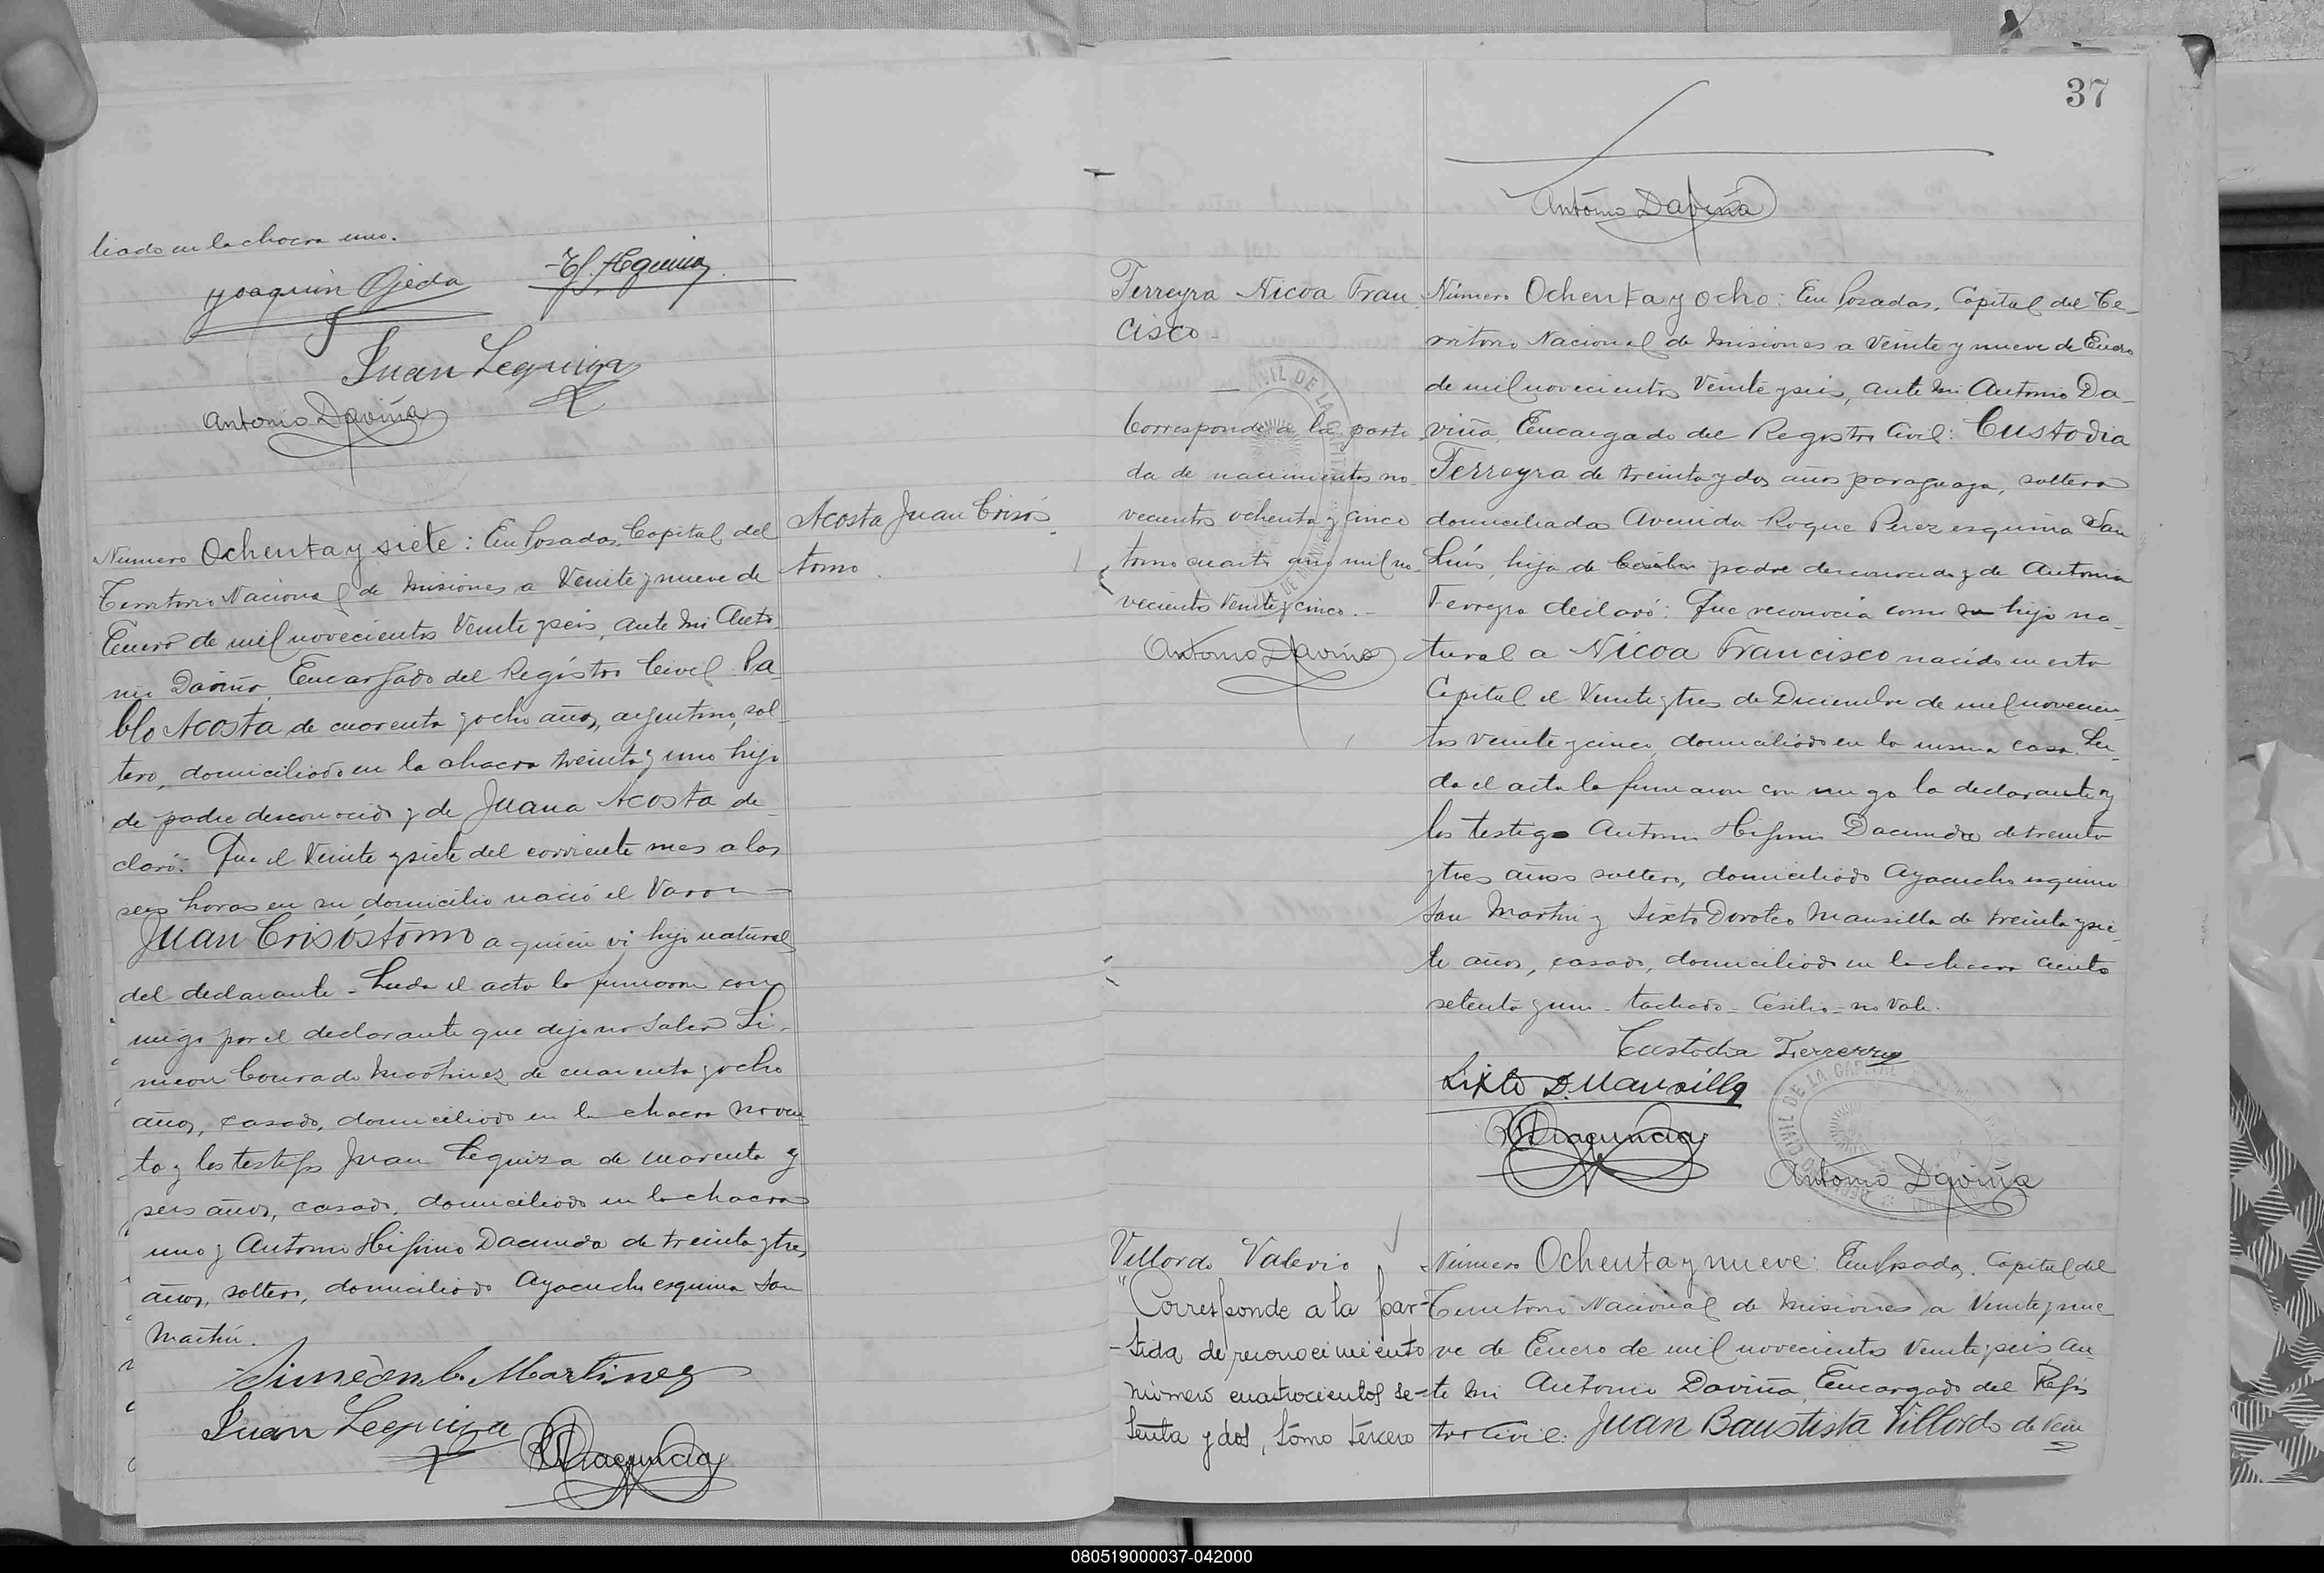 liado en la chacra uno.
Joaquin Ojeda
Juan Leguiza
Antonio Daviña
Acosta Juan Crisós
tomo
Número Ochenta y siete: En Posadas, Capital del
Territorio Nacional de Misiones a Veinte y nueve de
Enero de mil novecientos Veinte y seis, ante mi Anto
nio Daviña, Encargado del Registro Civil. Pa
blo Acosta de cuarenta y ocho años, argentino, sol
tero, domiciliado en la chacra treinta y uno hijo
de padre desconocido y de Juana Acosta de
claró: Que el Veinte y siete del corriente mes a las
seis horas en su domicilio nació el Varon
Juan Crisóstomo a quien vi hijo natural
del declarante - Leida el acta la firmaron con
migo por el declarante que dijo no saber Si
meon Conrado Martinez de cuarenta y ocho
años, casado, domiciliado en la chacra noven
ta y los testigos Juan Leguiza de cuarenta y
seis años, casado, domiciliado en la chacra
uno y Antonio Higinio Dacunda de treinta y tres
años, soltero, domiciliado Ayacucho esquina San
Martin.
Simeón C. Martinez
Juan Leguiza
37
Antonio Daviña
Ferreyra Nicoa Fran
cisco -
Corresponde a la parti
da de nacimientos no
vecientos ochenta y cinco
tomo cuarto año mil no
vecientos Veinte y cinco. -
Antonio Daviña
Número Ochenta y ocho: En Posadas, Capital del Te-
rritorio Nacional de Misiones a Veinte y nueve de Enero
de mil novecientos Veinte y seis, ante mi Antonio Da-
viña, Encargado del Registro Civil: Custodia
Ferreyra de treinta y dos años paraguaya, soltera
domiciliada Avenida Roque Perez esquina San
Luis, hija de Cesilio padre desconocido y de Antonia
Ferreyra declaró: Que reconocia como su hijo na-
tural a Nicoa Francisco nacido en esta
Capital el Veinte y tres de Diciembre de mil novecien-
tos veinte y cinco, domiciliado en la misma casa. Lei-
da el acta la firmaron con migo la declarante y
los testigos Antonio Higinio Dacunda de treinta
y tres años soltero, domiciliado Ayacucho esquina
San Martin y Sixto Doroteo Mansilla de treinta y sie-
te años, casado, domiciliado en la chacra ciento
setenta y uno - tachado - Cesilio - no vale.
Custodia Ferreyra
Sixto D. Mansilla
Antonio Daviña
Villordo Valerio
"Corresponde a la par-
-tida de reconocimiento
número cuatrocientos se-
tenta y dos, tómo tércero
Número Ochenta y nueve: En Posadas, Capital del
Territorio Nacional de Misiones a Veinte y nue
ve de Enero de mil novecientos Veinte y seis an-
te mi Antonio Daviña, Encargado del Regis
tro Civil: Juan Bautista Villordo de Vein
080519000037-042000